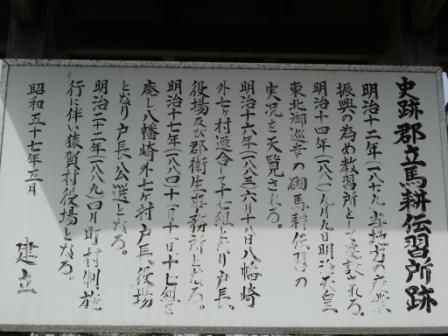 史跡郡立馬耕伝習所跡
明治十二年(一八七九)当地方の産業
振興の為め教習所として建設される。
明治十四年(一八八一)九月九日明治天皇
東北御巡幸の砌馬耕伝習の
実況を天覧される。
明治十六年(一八八三)六月十八日八幡崎
外七ヶ村連合し十七組となり戸長
役場及び郡衛生事務所となる。
明治十七年(一八八四)十一月十一日十七組を
廃し八幡崎外七ヶ村戸長役場
となり戸長公選となる。
明治二十二年(一八八九)四月町村制施
行に伴い猿賀村役場となる。
昭和五十七年五月
建立